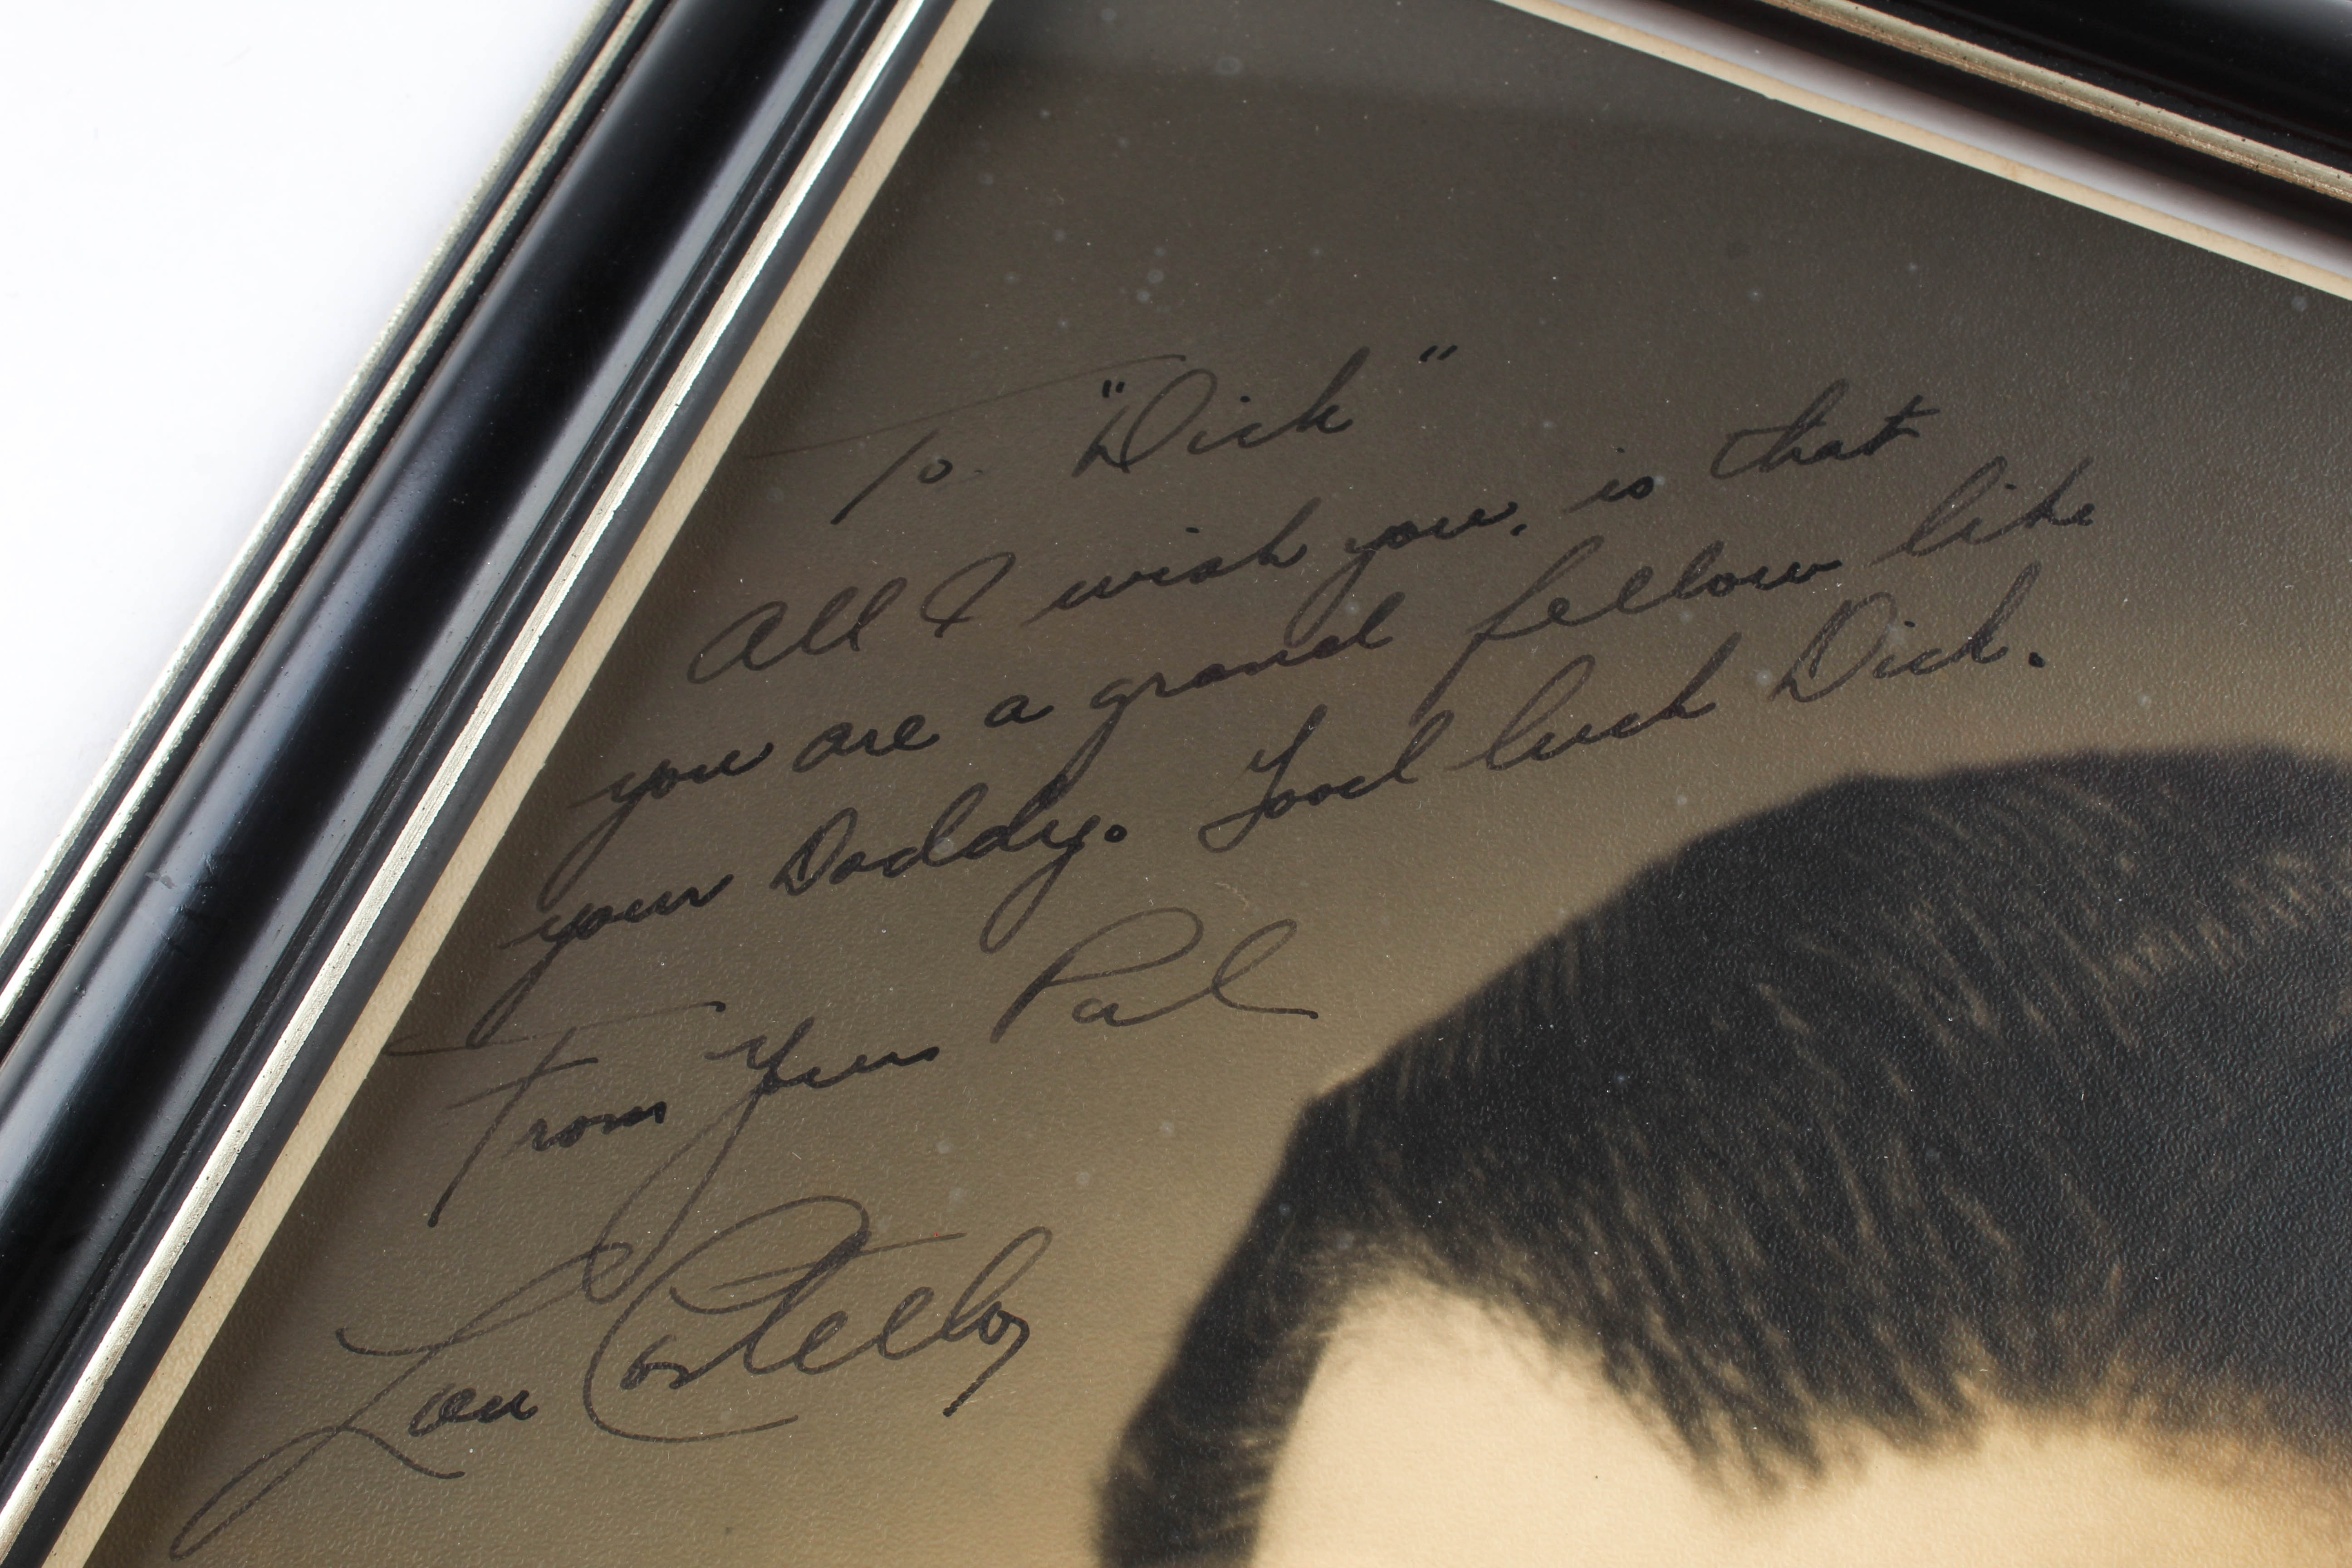 To "Dick"
All I wish you, is that
you are a grand fellow like
your Daddy. Good luck Dick.
From Your Pal
Lou Costello